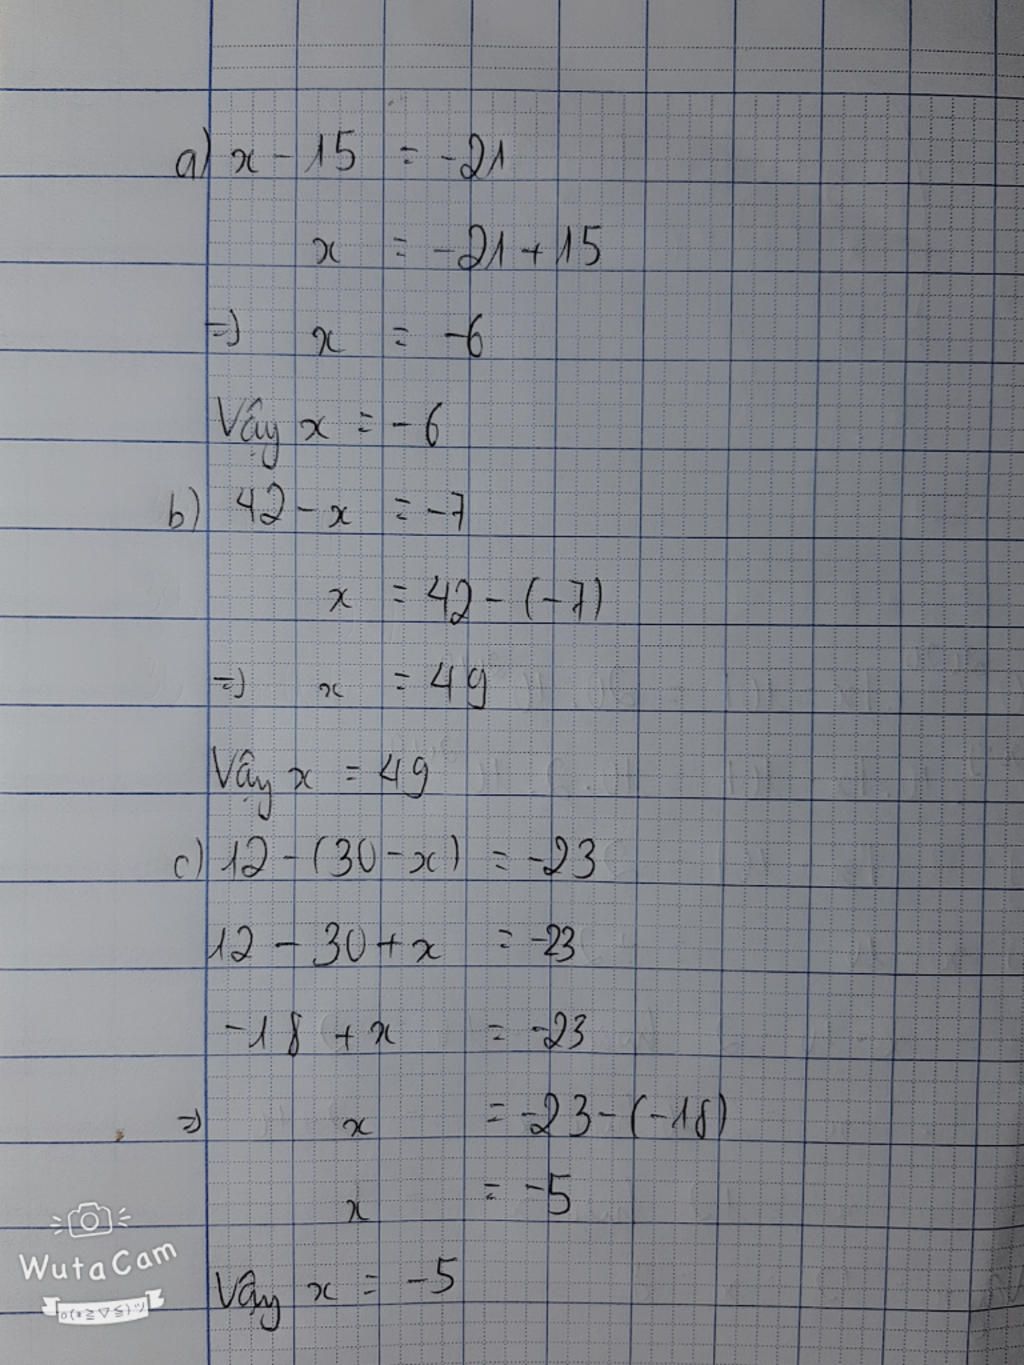 a) x - 15 = -21
x = -21 + 15
=) x = -6
Vậy x = -6
b) 42 - x = -7
x = 42 - (-7)
=) x = 49
Vậy x = 49
c) 12 - (30 - x) = -23
12 - 30 + x = -23
-18 + x = -23
=) x = -23 - (-18)
x = -5
Vậy x = -5
WutaCam